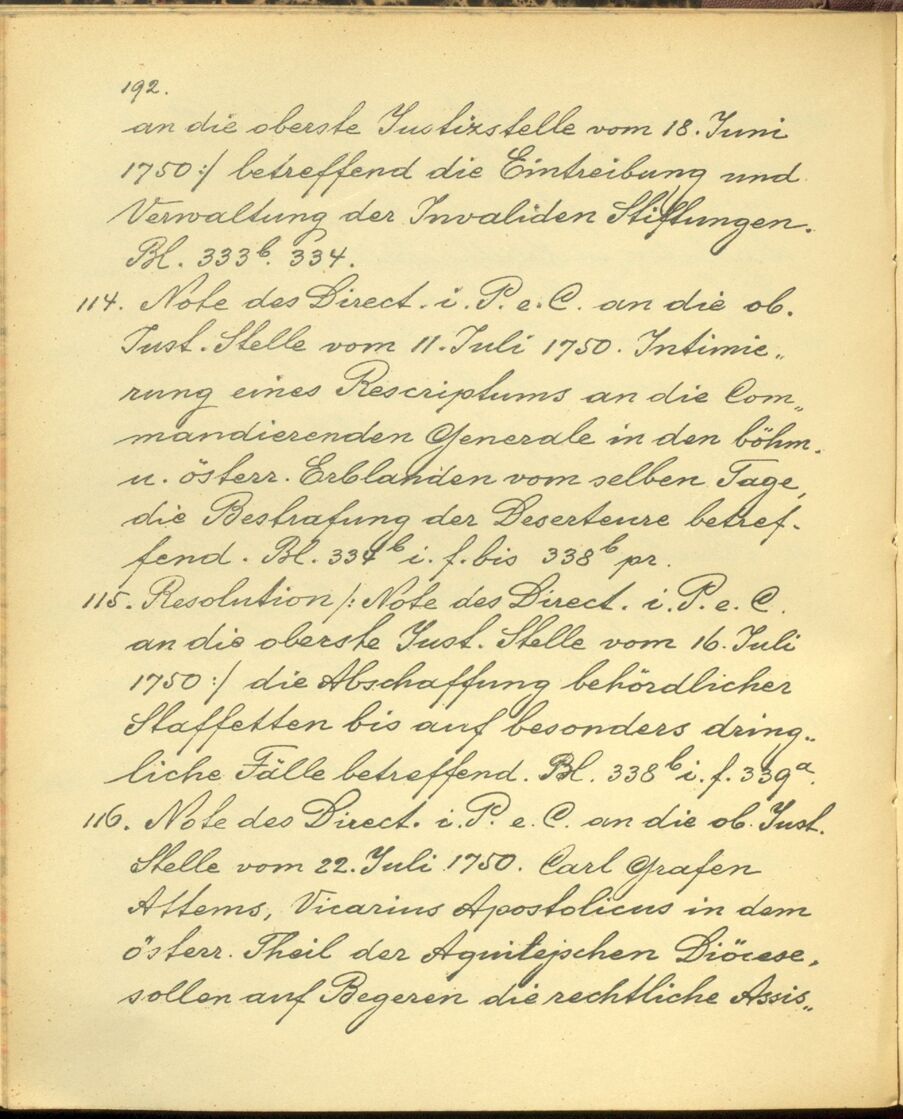 192.
an die oberste Justizstelle vom 18. Juni
1750:/ betreffend die Eintreibung und
Verwaltung der Invaliden Stiftungen.
Bl. 333b. 334.
114. Note des Direct. i. P. e. C. an die ob.
Just. Stelle vom 11. Juli 1750. Intimie„
rung eines Rescriptums an die Com„
mandierenden Generale in den böhm.
u. österr. Erblanden vom selben Tage,
die Bestrafung der Deserteure betref-
fend. Bl. 334b i. f. bis 338b pr.
115. Resolution /: Note des Direct. i. P. e. C.
an die oberste Just. Stelle vom 16. Juli
1750:/ die Abschaffung behördlicher
Staffetten bis auf besonders dring„
liche Fälle betreffend. Bl. 338b i. f. 339a.
116. Note des Direct. i. P. e. C. an die ob. Just.
Stelle vom 22. Juli 1750. Carl Grafen
Attems, Vicarius Apostolicus in dem
österr. Theil der Aquilejschen Diöcese,
sollen auf Begeren die rechtliche Assis„